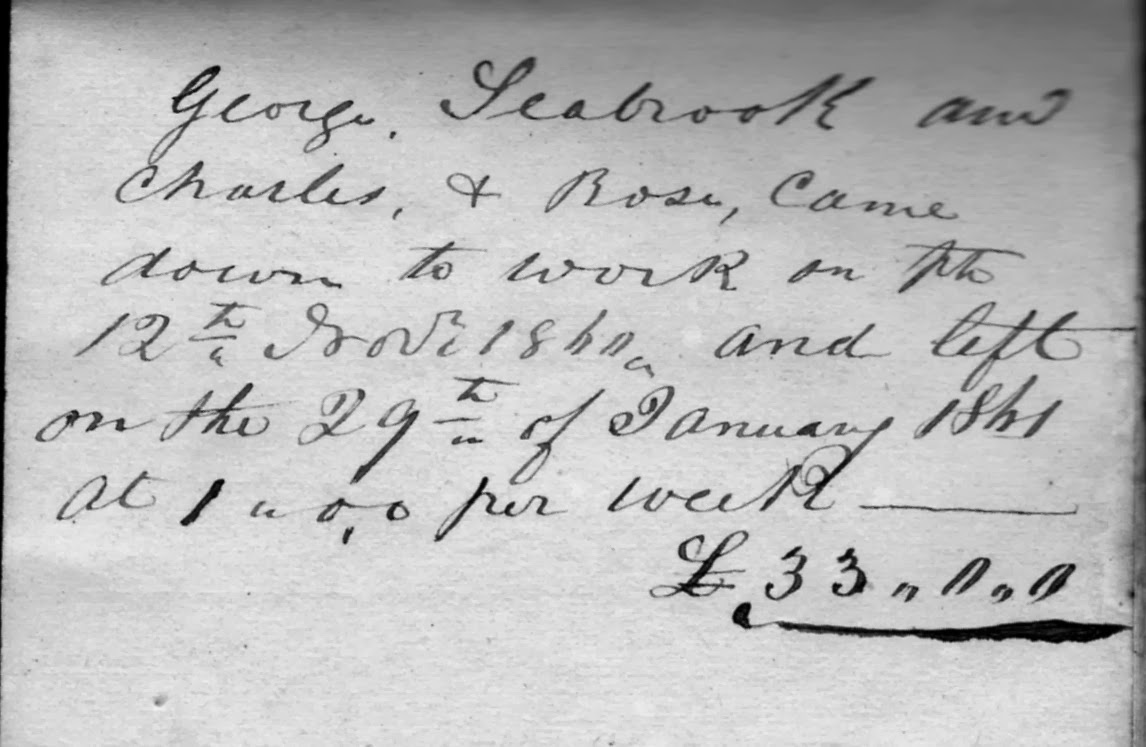 George, Seabrook and
Charles, & Rose, Came
down to work on the
12th Novr 1860, and left
on the 29th of January 1861
at 1 " 0, 0 per week —
£ 33 " 0 " 0